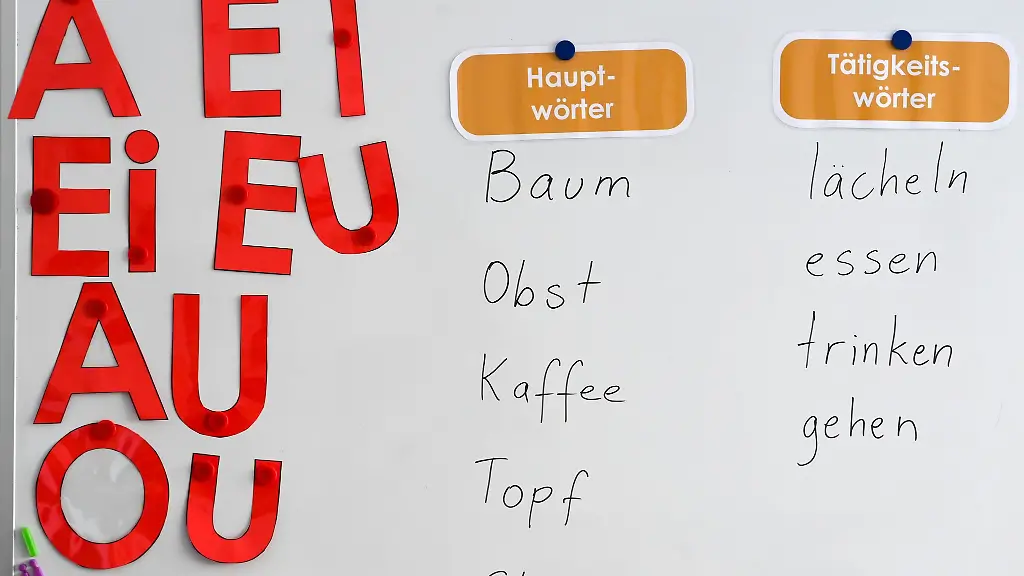 A E I
Ei EU
AU
OU
Haupt-
wörter
Baum
Obst
Kaffee
Topf
Tätigkeits-
wörter
lächeln
essen
trinken
gehen